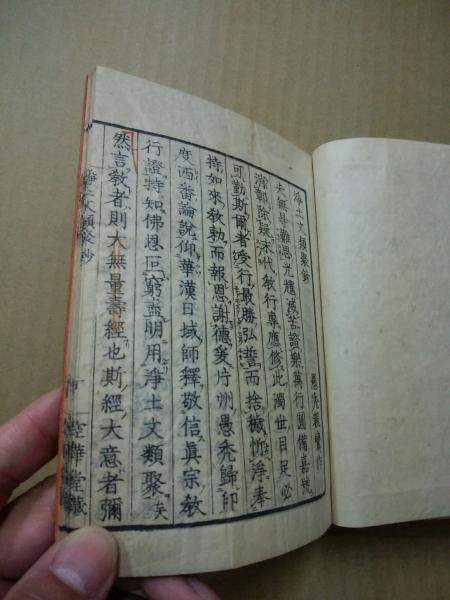 淨土文類聚鈔
愚禿親鸞作
夫無㝵難思光耀滅苦證樂萬行圓備嘉號
消鄣除疑末代教行專應修此濁世目足必
可勤斯爾者受行最勝弘誓而捨穢忻淨奉
持如來教勅而報恩謝德爰片州愚禿歸印
度西蕃論說仰華漢日域師釋敬信眞宗教
行證特知佛恩叵窮盡明用淨土文類聚矣
然言教者則大無量壽經也斯經大意者彌
淨土文類聚鈔
華堂藏